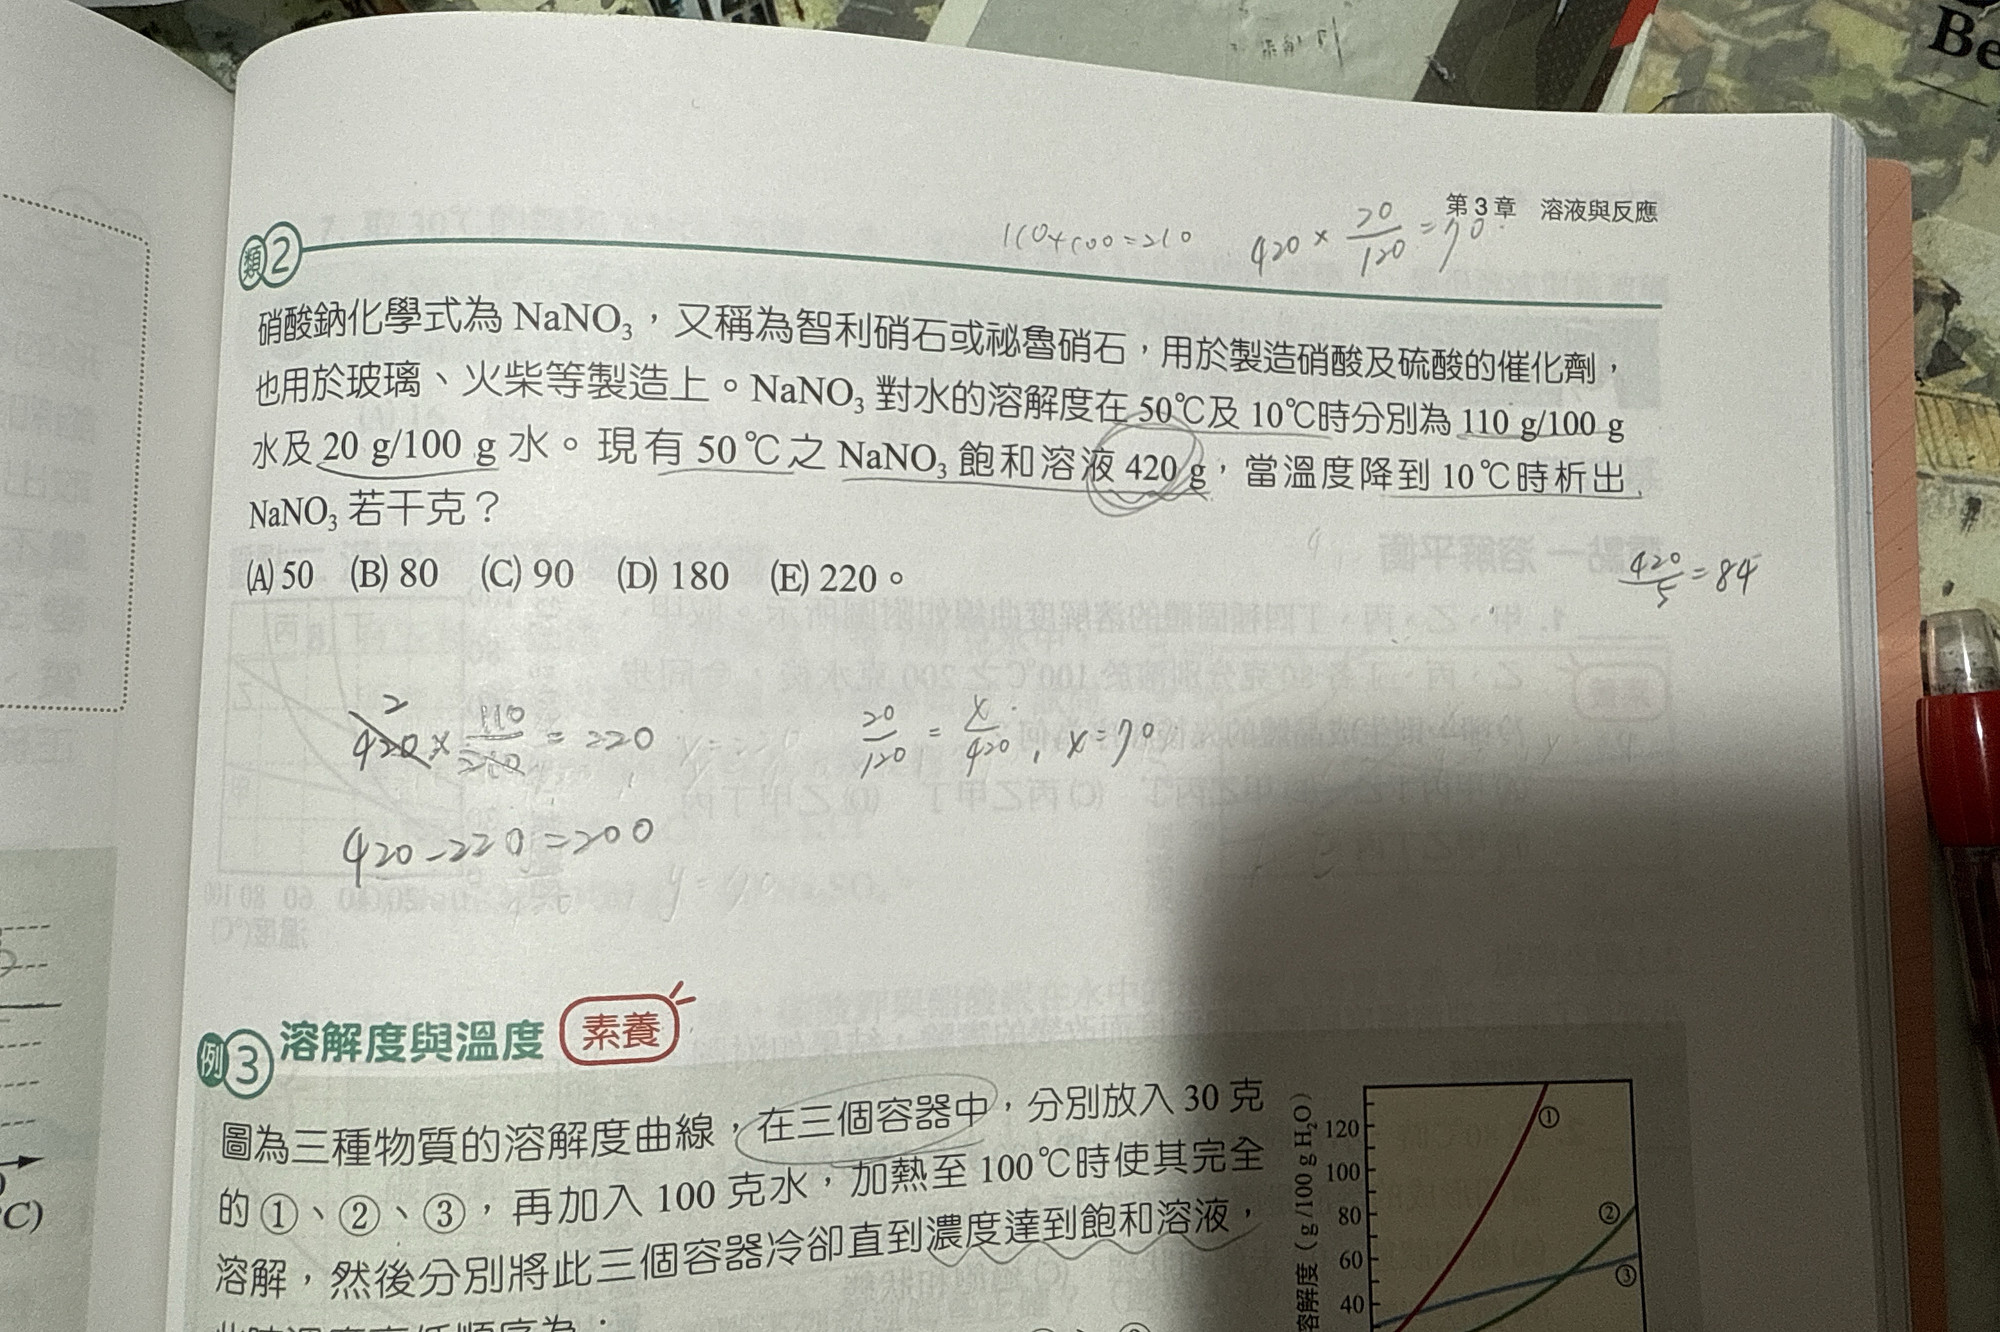 Be
第3章 溶液與反應
110+100=210
420 × 20/120 = 70
類2
硝酸鈉化學式為 NaNO₃，又稱為智利硝石或祕魯硝石，用於製造硝酸及硫酸的催化劑，
也用於玻璃、火柴等製造上。NaNO₃ 對水的溶解度在 50℃及 10℃時分別為 110 g/100 g
水及 20 g/100 g 水。現有 50℃之 NaNO₃ 飽和溶液 420 g，當溫度降到 10℃時析出
NaNO₃ 若干克？
(A) 50 (B) 80 (C) 90 (D) 180 (E) 220。
420/5 = 84
2
420 × 110/210 = 220
20/120 = x/420, x=70
420-220=200
例3 溶解度與溫度 素養
圖為三種物質的溶解度曲線，在三個容器中，分別放入 30 克
的①、②、③，再加入 100 克水，加熱至 100℃時使其完全
溶解，然後分別將此三個容器冷卻直到濃度達到飽和溶液，
溶解度（g/100 g H₂O）
120
100
80
60
40
①
②
③
℃)